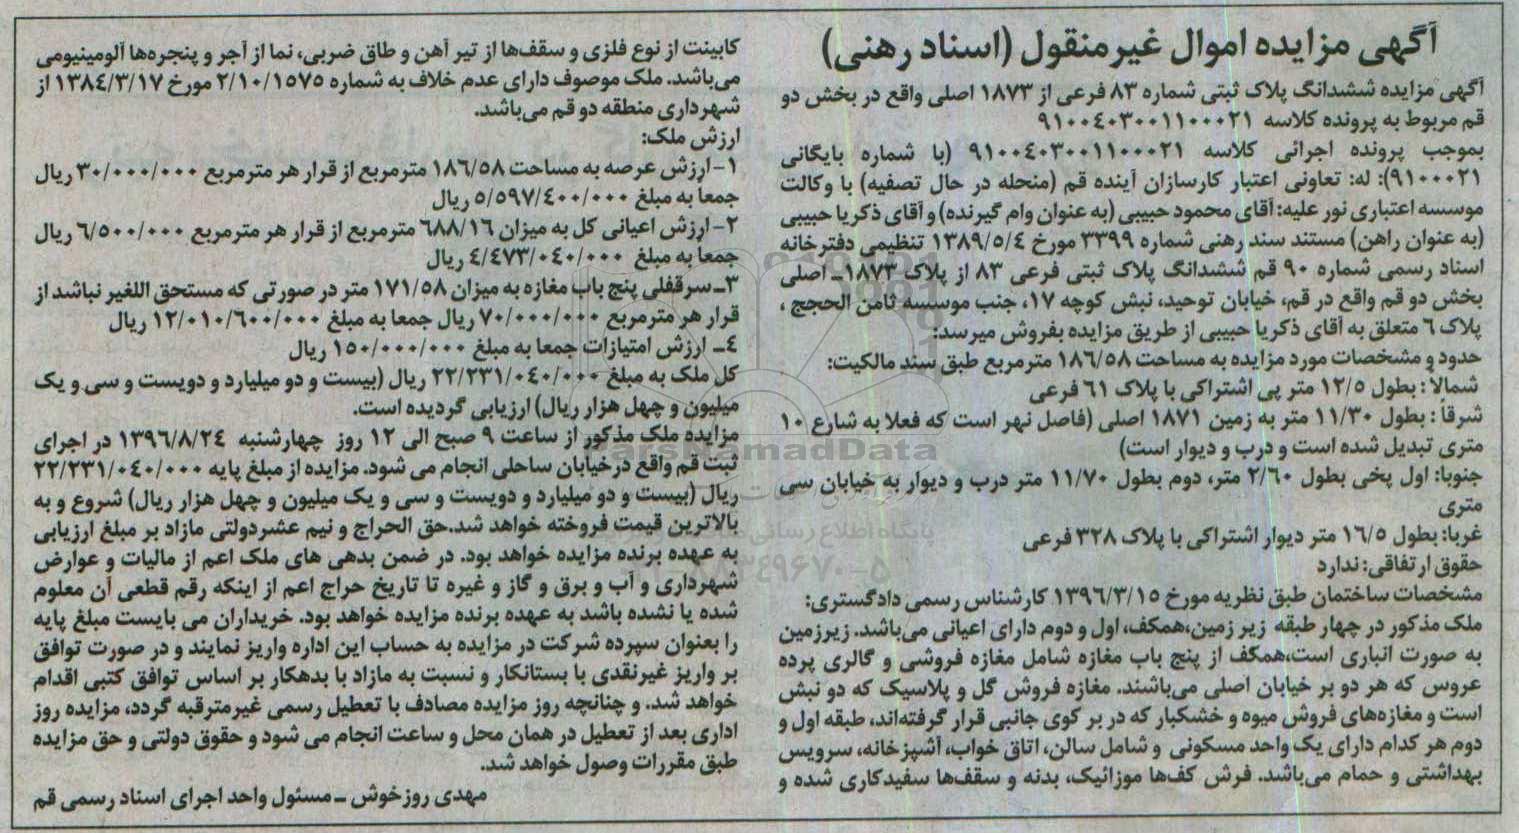 آگهی مزایده اموال غیرمنقول (اسناد رهنی)
آگهی مزایده ششدانگ پلاک ثبتی شماره ۸۳ فرعی از ۱۸۷۳ اصلی واقع در بخش دو
قم مربوط به پرونده کلاسه ۹۱۰۰۴۰۳۰۰۱۱۰۰۰۲۱
بموجب پرونده اجرائی کلاسه ۹۱۰۰۴۰۳۰۰۱۱۰۰۰۲۱ (با شماره بایگانی
۹۱۰۰۰۲۱): له: تعاونی اعتبار کارسازان آینده قم (منحله در حال تصفیه) با وکالت
موسسه اعتباری نور علیه: آقای محمود حبیبی (به عنوان وام گیرنده) و آقای ذکریا حبیبی
(به عنوان راهن) مستند سند رهنی شماره ۳۳۹۹ مورخ ۱۳۸۹/۵/۴ تنظیمی دفترخانه
اسناد رسمی شماره ۹۰ قم ششدانگ پلاک ثبتی فرعی ۸۳ از پلاک ۱۸۷۳ـ اصلی
بخش دو قم واقع در قم، خیابان توحید، نبش کوچه ۱۷، جنب موسسه ثامن الحجج ،
پلاک ۶ متعلق به آقای ذکریا حبیبی از طریق مزایده بفروش میرسد:
حدود و مشخصات مورد مزایده به مساحت ۱۸۶/۵۸ مترمربع طبق سند مالکیت:
شمالاً : بطول ۱۲/۵ متر پی اشتراکی با پلاک ۶۱ فرعی
شرقاً : بطول ۱۱/۳۰ متر به زمین ۱۸۷۱ اصلی (فاصل نهر است که فعلا به شارع ۱۰
متری تبدیل شده است و درب و دیوار است)
جنوبا: اول پخی بطول ۲/۶۰ متر، دوم بطول ۱۱/۷۰ متر درب و دیوار به خیابان سی
متری
غربا: بطول ۱۶/۵ متر دیوار اشتراکی با پلاک ۳۲۸ فرعی
حقوق ارتفاقی: ندارد
مشخصات ساختمان طبق نظریه مورخ ۱۳۹۶/۳/۱۵ کارشناس رسمی دادگستری:
ملک مذکور در چهار طبقه زیر زمین،همکف، اول و دوم دارای اعیانی می‌باشد. زیرزمین
به صورت انباری است،همکف از پنج باب مغازه شامل مغازه فروشی و گالری پرده
عروس که هر دو بر خیابان اصلی می‌باشند. مغازه فروش گل و پلاسیک که دو نبش
است و مغازه‌های فروش میوه و خشکبار که در بر کوی جانبی قرار گرفته‌اند، طبقه اول و
دوم هر کدام دارای یک واحد مسکونی و شامل سالن، اتاق خواب، آشپزخانه، سرویس
بهداشتی و حمام می‌باشد. فرش کف‌ها موزائیک، بدنه و سقف‌ها سفیدکاری شده و
کابینت از نوع فلزی و سقف‌ها از تیر آهن و طاق ضربی، نما از آجر و پنجره‌ها آلومینیومی
می‌باشد. ملک موصوف دارای عدم خلاف به شماره ۲/۱۰/۱۵۷۵ مورخ ۱۳۸۴/۳/۱۷ از
شهرداری منطقه دو قم می‌باشد.
ارزش ملک:
۱- ارزش عرصه به مساحت ۱۸۶/۵۸ مترمربع از قرار هر مترمربع ۳۰/۰۰۰/۰۰۰ ریال
جمعا به مبلغ ۵/۵۹۷/۴۰۰/۰۰۰ ریال
۲- ارزش اعیانی کل به میزان ۶۸۸/۱۶ مترمربع از قرار هر مترمربع ۶/۵۰۰/۰۰۰ ریال
جمعاً به مبلغ ۴/۴۷۳/۰۴۰/۰۰۰ ریال
۳ـ سرقفلی پنج باب مغازه به میزان ۱۷۱/۵۸ متر در صورتی که مستحق اللغیر نباشد از
قرار هر مترمربع ۷۰/۰۰۰/۰۰۰ ریال جمعا به مبلغ ۱۲/۰۱۰/۶۰۰/۰۰۰ ریال
۴ـ ارزش امتیازات جمعا به مبلغ ۱۵۰/۰۰۰/۰۰۰ ریال
کل ملک به مبلغ ۲۲/۲۳۱/۰۴۰/۰۰۰ ریال (بیست و دو میلیارد و دویست و سی و یک
میلیون و چهل هزار ریال) ارزیابی گردیده است.
مزایده ملک مذکور از ساعت ۹ صبح الی ۱۲ روز چهارشنبه ۱۳۹۶/۸/۲۴ در اجرای
ثبت قم واقع درخیابان ساحلی انجام می شود. مزایده از مبلغ پایه ۲۲/۲۳۱/۰۴۰/۰۰۰
ریال (بیست و دو میلیارد و دویست و سی و یک میلیون و چهل هزار ریال) شروع و به
بالاترین قیمت فروخته خواهد شد.حق الحراج و نیم عشردولتی مازاد بر مبلغ ارزیابی
به عهده برنده مزایده خواهد بود. در ضمن بدهی های ملک اعم از مالیات و عوارض
شهرداری و آب و برق و گاز و غیره تا تاریخ حراج اعم از اینکه رقم قطعی آن معلوم
شده یا نشده باشد به عهده برنده مزایده خواهد بود. خریداران می بایست مبلغ پایه
را بعنوان سپرده شرکت در مزایده به حساب این اداره واریز نمایند و در صورت توافق
بر واریز غیرنقدی با بستانکار و نسبت به مازاد با بدهکار بر اساس توافق کتبی اقدام
خواهد شد. و چنانچه روز مزایده مصادف با تعطیل رسمی غیرمترقبه گردد، مزایده روز
اداری بعد از تعطیل در همان محل و ساعت انجام می شود و حقوق دولتی و حق مزایده
طبق مقررات وصول خواهد شد.
مهدی روزخوش ـ مسئول واحد اجرای اسناد رسمی قم
ParsNamadData